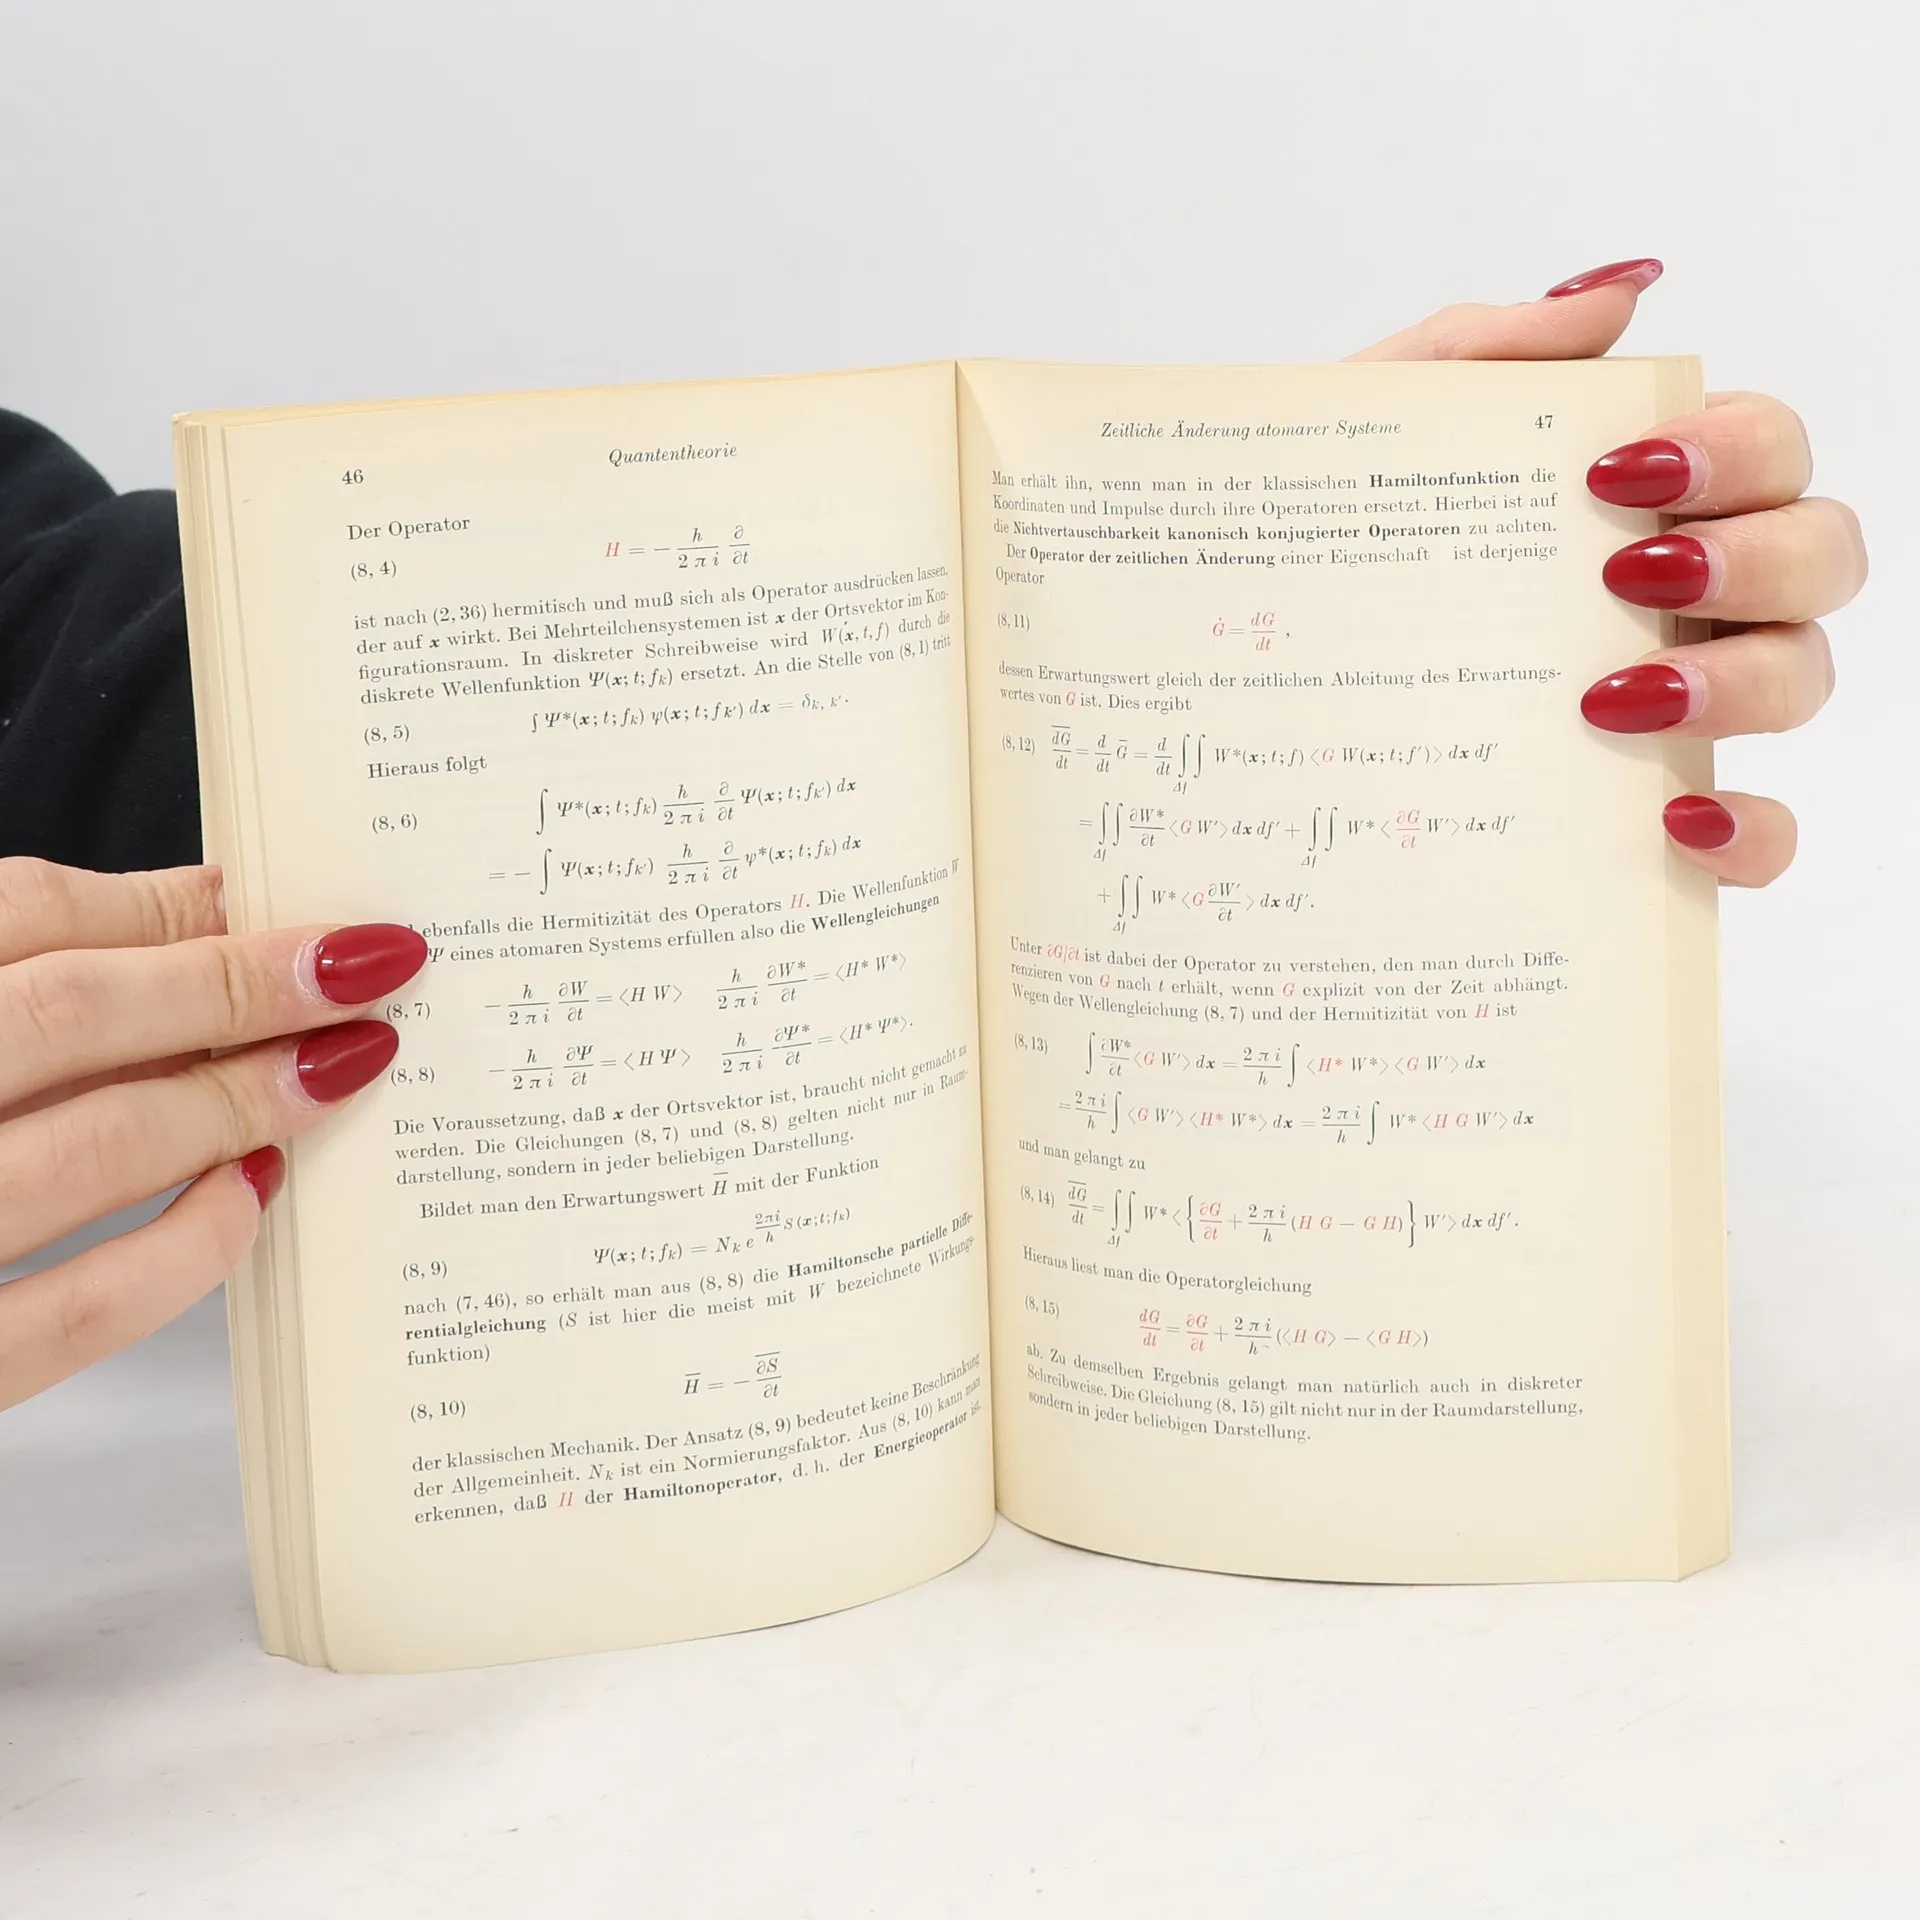 46
Quantentheorie
Der Operator
(8, 4) H = − h/(2 π i) ∂/∂t
ist nach (2,36) hermitisch und muß sich als Operator ausdrücken lassen,
der auf x wirkt. Bei Mehrteilchensystemen ist x der Ortsvektor im Kon-
figurationsraum. In diskreter Schreibweise wird W(x, t, f) durch die
diskrete Wellenfunktion Ψ(x; t; fk) ersetzt. An die Stelle von (8, 1) tritt
(8, 5) ∫ Ψ*(x; t; fk) ψ(x; t; fk′) dx = δk, k′.
Hieraus folgt
(8, 6) ∫ Ψ*(x; t; fk) h/(2 π i) ∂/∂t Ψ(x; t; fk′) dx
= − ∫ Ψ(x; t; fk′) h/(2 π i) ∂/∂t ψ*(x; t; fk) dx
ebenfalls die Hermitizität des Operators H. Die Wellenfunktion W
Ψ eines atomaren Systems erfüllen also die Wellengleichungen
(8, 7) − h/(2 π i) ∂W/∂t = ⟨H W⟩ h/(2 π i) ∂W*/∂t = ⟨H* W*⟩
(8, 8) − h/(2 π i) ∂Ψ/∂t = ⟨H Ψ⟩ h/(2 π i) ∂Ψ*/∂t = ⟨H* Ψ*⟩.
Die Voraussetzung, daß x der Ortsvektor ist, braucht nicht gemacht zu
werden. Die Gleichungen (8, 7) und (8, 8) gelten nicht nur in Raum-
darstellung, sondern in jeder beliebigen Darstellung.
Bildet man den Erwartungswert H̅ mit der Funktion
(8, 9) Ψ(x; t; fk) = Nk e^(2πi/h S(x; t; fk))
nach (7, 46), so erhält man aus (8, 8) die Hamiltonsche partielle Diffe-
rentialgleichung (S ist hier die meist mit W bezeichnete Wirkungs-
funktion)
(8, 10) H̅ = − ∂S̅/∂t
der klassischen Mechanik. Der Ansatz (8, 9) bedeutet keine Beschränkung
der Allgemeinheit. Nk ist ein Normierungsfaktor. Aus (8, 10) kann man
erkennen, daß H der Hamiltonoperator, d. h. der Energieoperator ist.
Zeitliche Änderung atomarer Systeme
47
Man erhält ihn, wenn man in der klassischen Hamiltonfunktion die
Koordinaten und Impulse durch ihre Operatoren ersetzt. Hierbei ist auf
die Nichtvertauschbarkeit kanonisch konjugierter Operatoren zu achten.
Der Operator der zeitlichen Änderung einer Eigenschaft ist derjenige
Operator
(8, 11) Ġ = dG/dt ,
dessen Erwartungswert gleich der zeitlichen Ableitung des Erwartungs-
wertes von G ist. Dies ergibt
(8, 12) \overline{dG}/dt = d/dt G̅ = d/dt ∫∫Δf W*(x; t; f) ⟨G W(x; t; f′)⟩ dx df′
= ∫∫Δf ∂W*/∂t ⟨G W′⟩ dx df′ + ∫∫Δf W* ⟨∂G/∂t W′⟩ dx df′
+ ∫∫Δf W* ⟨G ∂W′/∂t⟩ dx df′.
Unter ∂G/∂t ist dabei der Operator zu verstehen, den man durch Diffe-
renzieren von G nach t erhält, wenn G explizit von der Zeit abhängt.
Wegen der Wellengleichung (8, 7) und der Hermitizität von H ist
(8, 13) ∫ ∂W*/∂t ⟨G W′⟩ dx = 2 π i/h ∫ ⟨H* W*⟩ ⟨G W′⟩ dx
= 2 π i/h ∫ ⟨G W′⟩ ⟨H* W*⟩ dx = 2 π i/h ∫ W* ⟨H G W′⟩ dx
und man gelangt zu
(8, 14) \overline{dG}/dt = ∫∫Δf W* ⟨{∂G/∂t + 2 π i/h (H G − G H)} W′⟩ dx df′.
Hieraus liest man die Operatorgleichung
(8, 15) dG/dt = ∂G/∂t + 2 π i/h (⟨H G⟩ − ⟨G H⟩)
ab. Zu demselben Ergebnis gelangt man natürlich auch in diskreter
Schreibweise. Die Gleichung (8, 15) gilt nicht nur in der Raumdarstellung,
sondern in jeder beliebigen Darstellung.